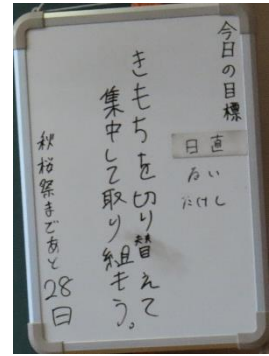 今日の目標
日直
るい
たけし
きもちを切り替えて
集中して取り組もう。
秋桜祭まであと28日